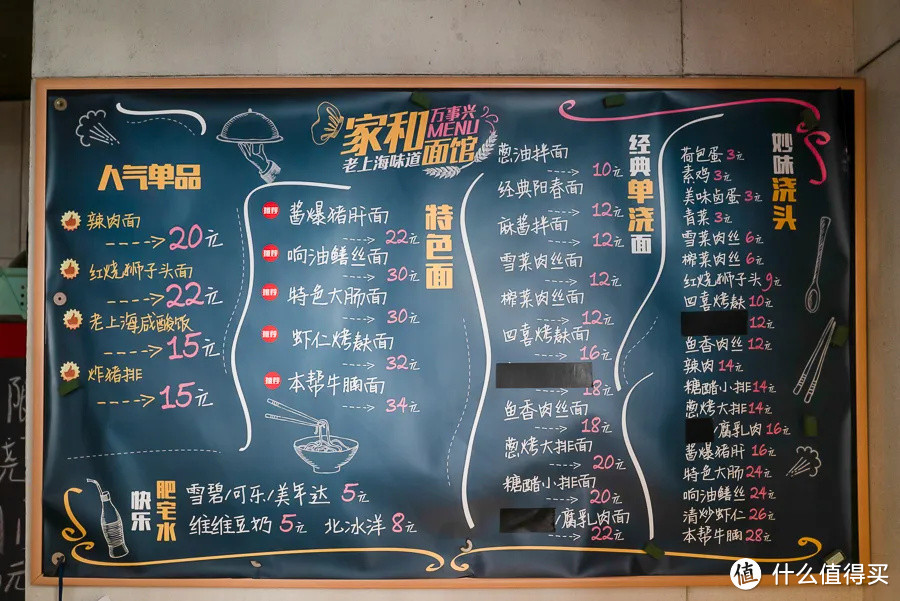 家和 万事兴
MENU
老上海味道 面馆
人气单品
辣肉面
20元
红烧狮子头面
22元
老上海咸酸饭
15元
炸猪排
15元
特色面
推荐 酱爆猪肝面
22元
推荐 响油鳝丝面
30元
推荐 特色大肠面
30元
推荐 虾仁烤麸面
32元
推荐 本帮牛腩面
34元
快乐
肥宅水
雪碧/可乐/美年达 5元
维维豆奶 5元 北冰洋 8元
经典单浇面
葱油拌面
10元
经典阳春面
12元
麻酱拌面
12元
雪菜肉丝面
12元
榨菜肉丝面
12元
四喜烤麸面
16元
18元
鱼香肉丝面
18元
葱烤大排面
20元
糖醋小排面
20元
/腐乳肉面
22元
妙味浇头
荷包蛋 3元
素鸡 3元
美味卤蛋 3元
青菜 3元
雪菜肉丝 6元
榨菜肉丝 6元
红烧狮子头 9元
四喜烤麸 10元
12元
鱼香肉丝 12元
辣肉 14元
糖醋小排 14元
葱烤大排 14元
/腐乳肉 16元
酱爆猪肝 16元
特色大肠 24元
响油鳝丝 24元
清炒虾仁 26元
本帮牛腩 28元
值 什么值得买